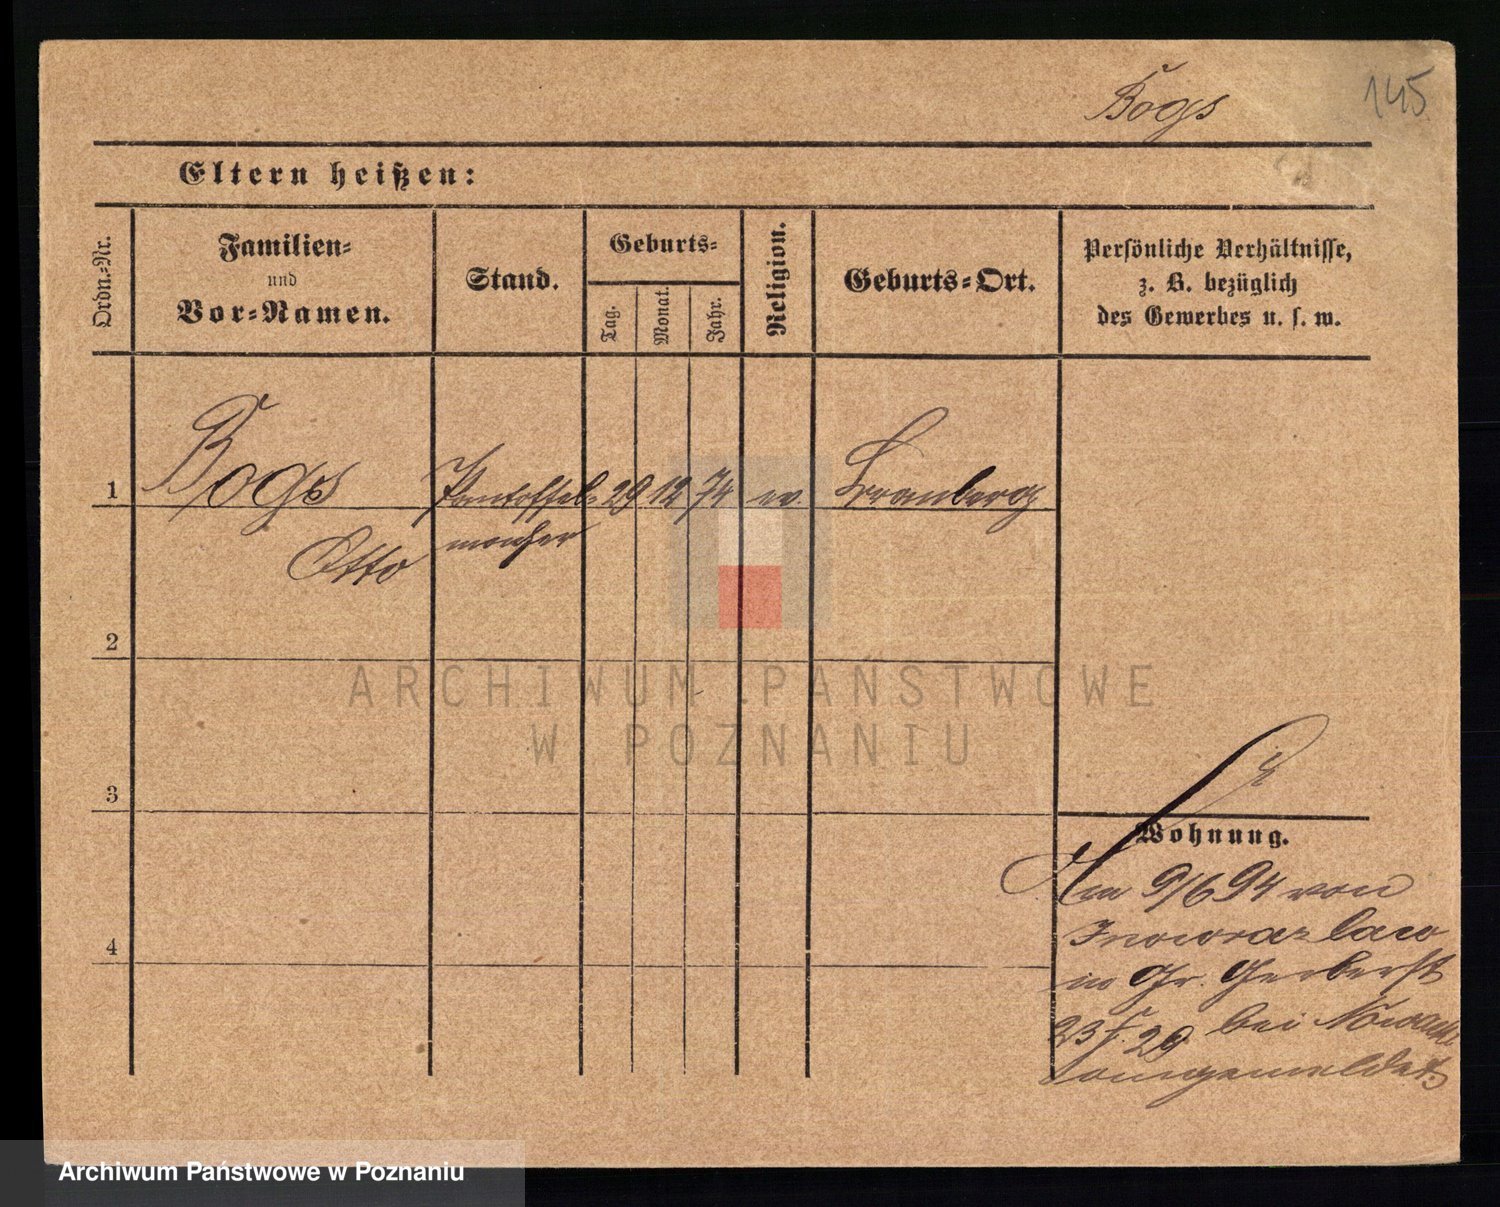 Bogs
145
Eltern heißen:
Ordn.-Nr.
Familien-
und
Vor-Namen.
Stand.
Geburts-
Tag.
Monat.
Jahr.
Religion.
Geburts-Ort.
Persönliche Verhältnisse,
z. B. bezüglich
des Gewerbes u. s. w.
1
Bogs
Pantoffel-
29
12
74
ev.
Otto
macher
2
3
4
Wohnung.
9/6 94 von
Inowrazlaw
in Gr. Gerberst
23 29 bei
angemeldet.
ARCHIWUM PAŃSTWOWE
W POZNANIU
Archiwum Państwowe w Poznaniu